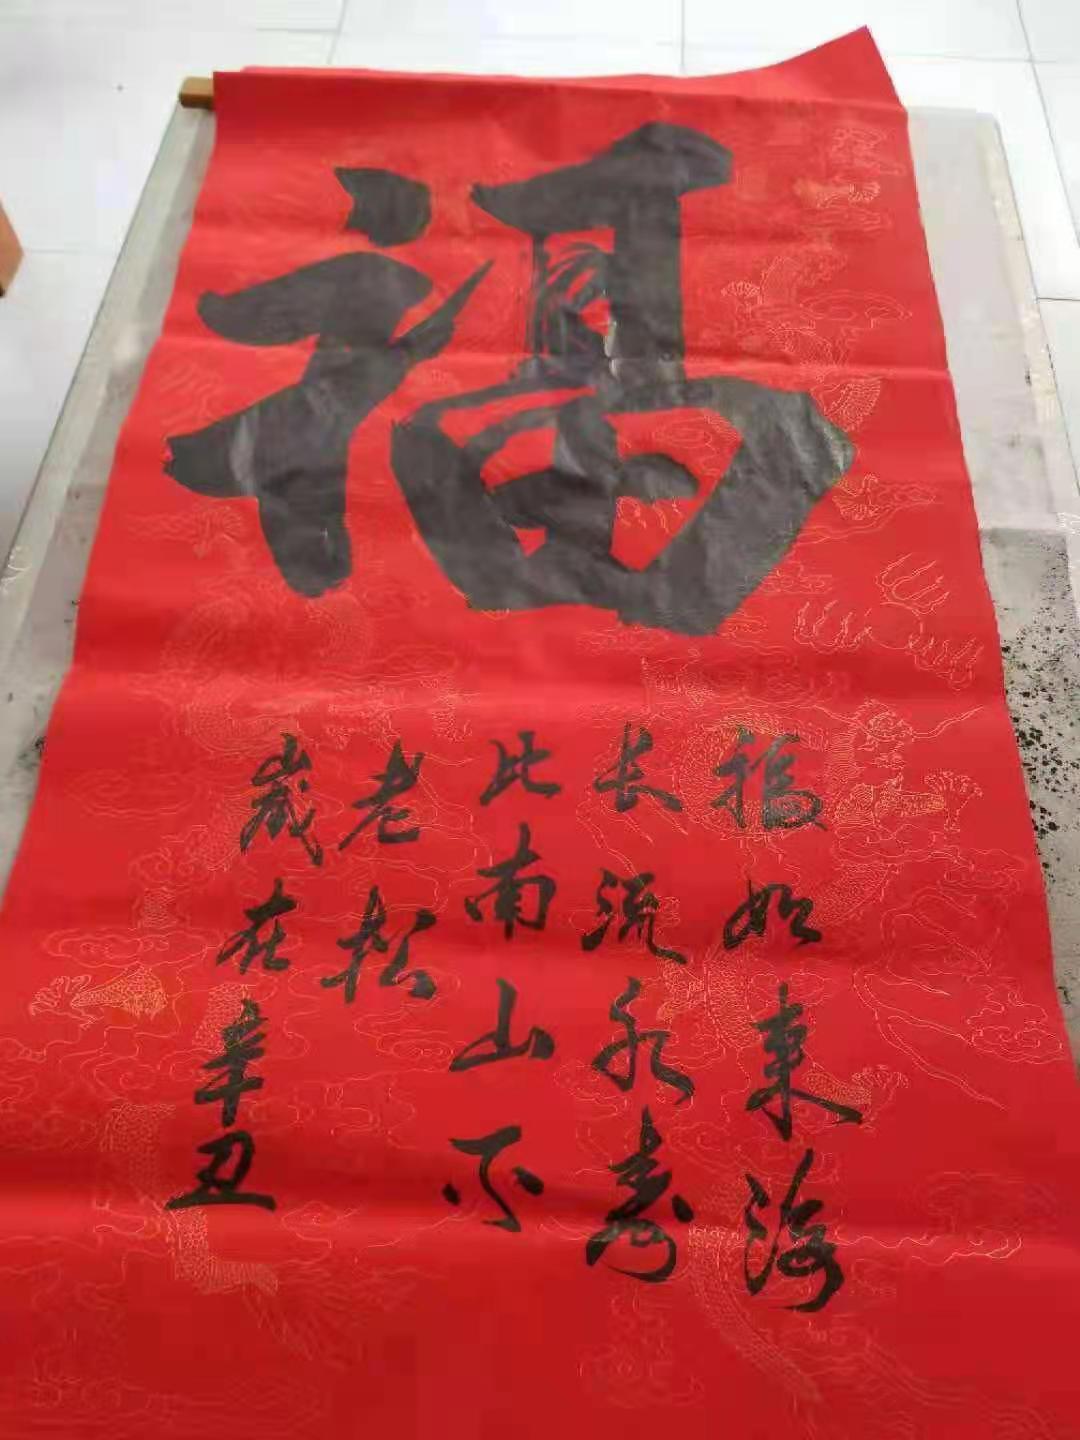 福
福如東海
长流水寿
比南山不
老松
歲在辛丑